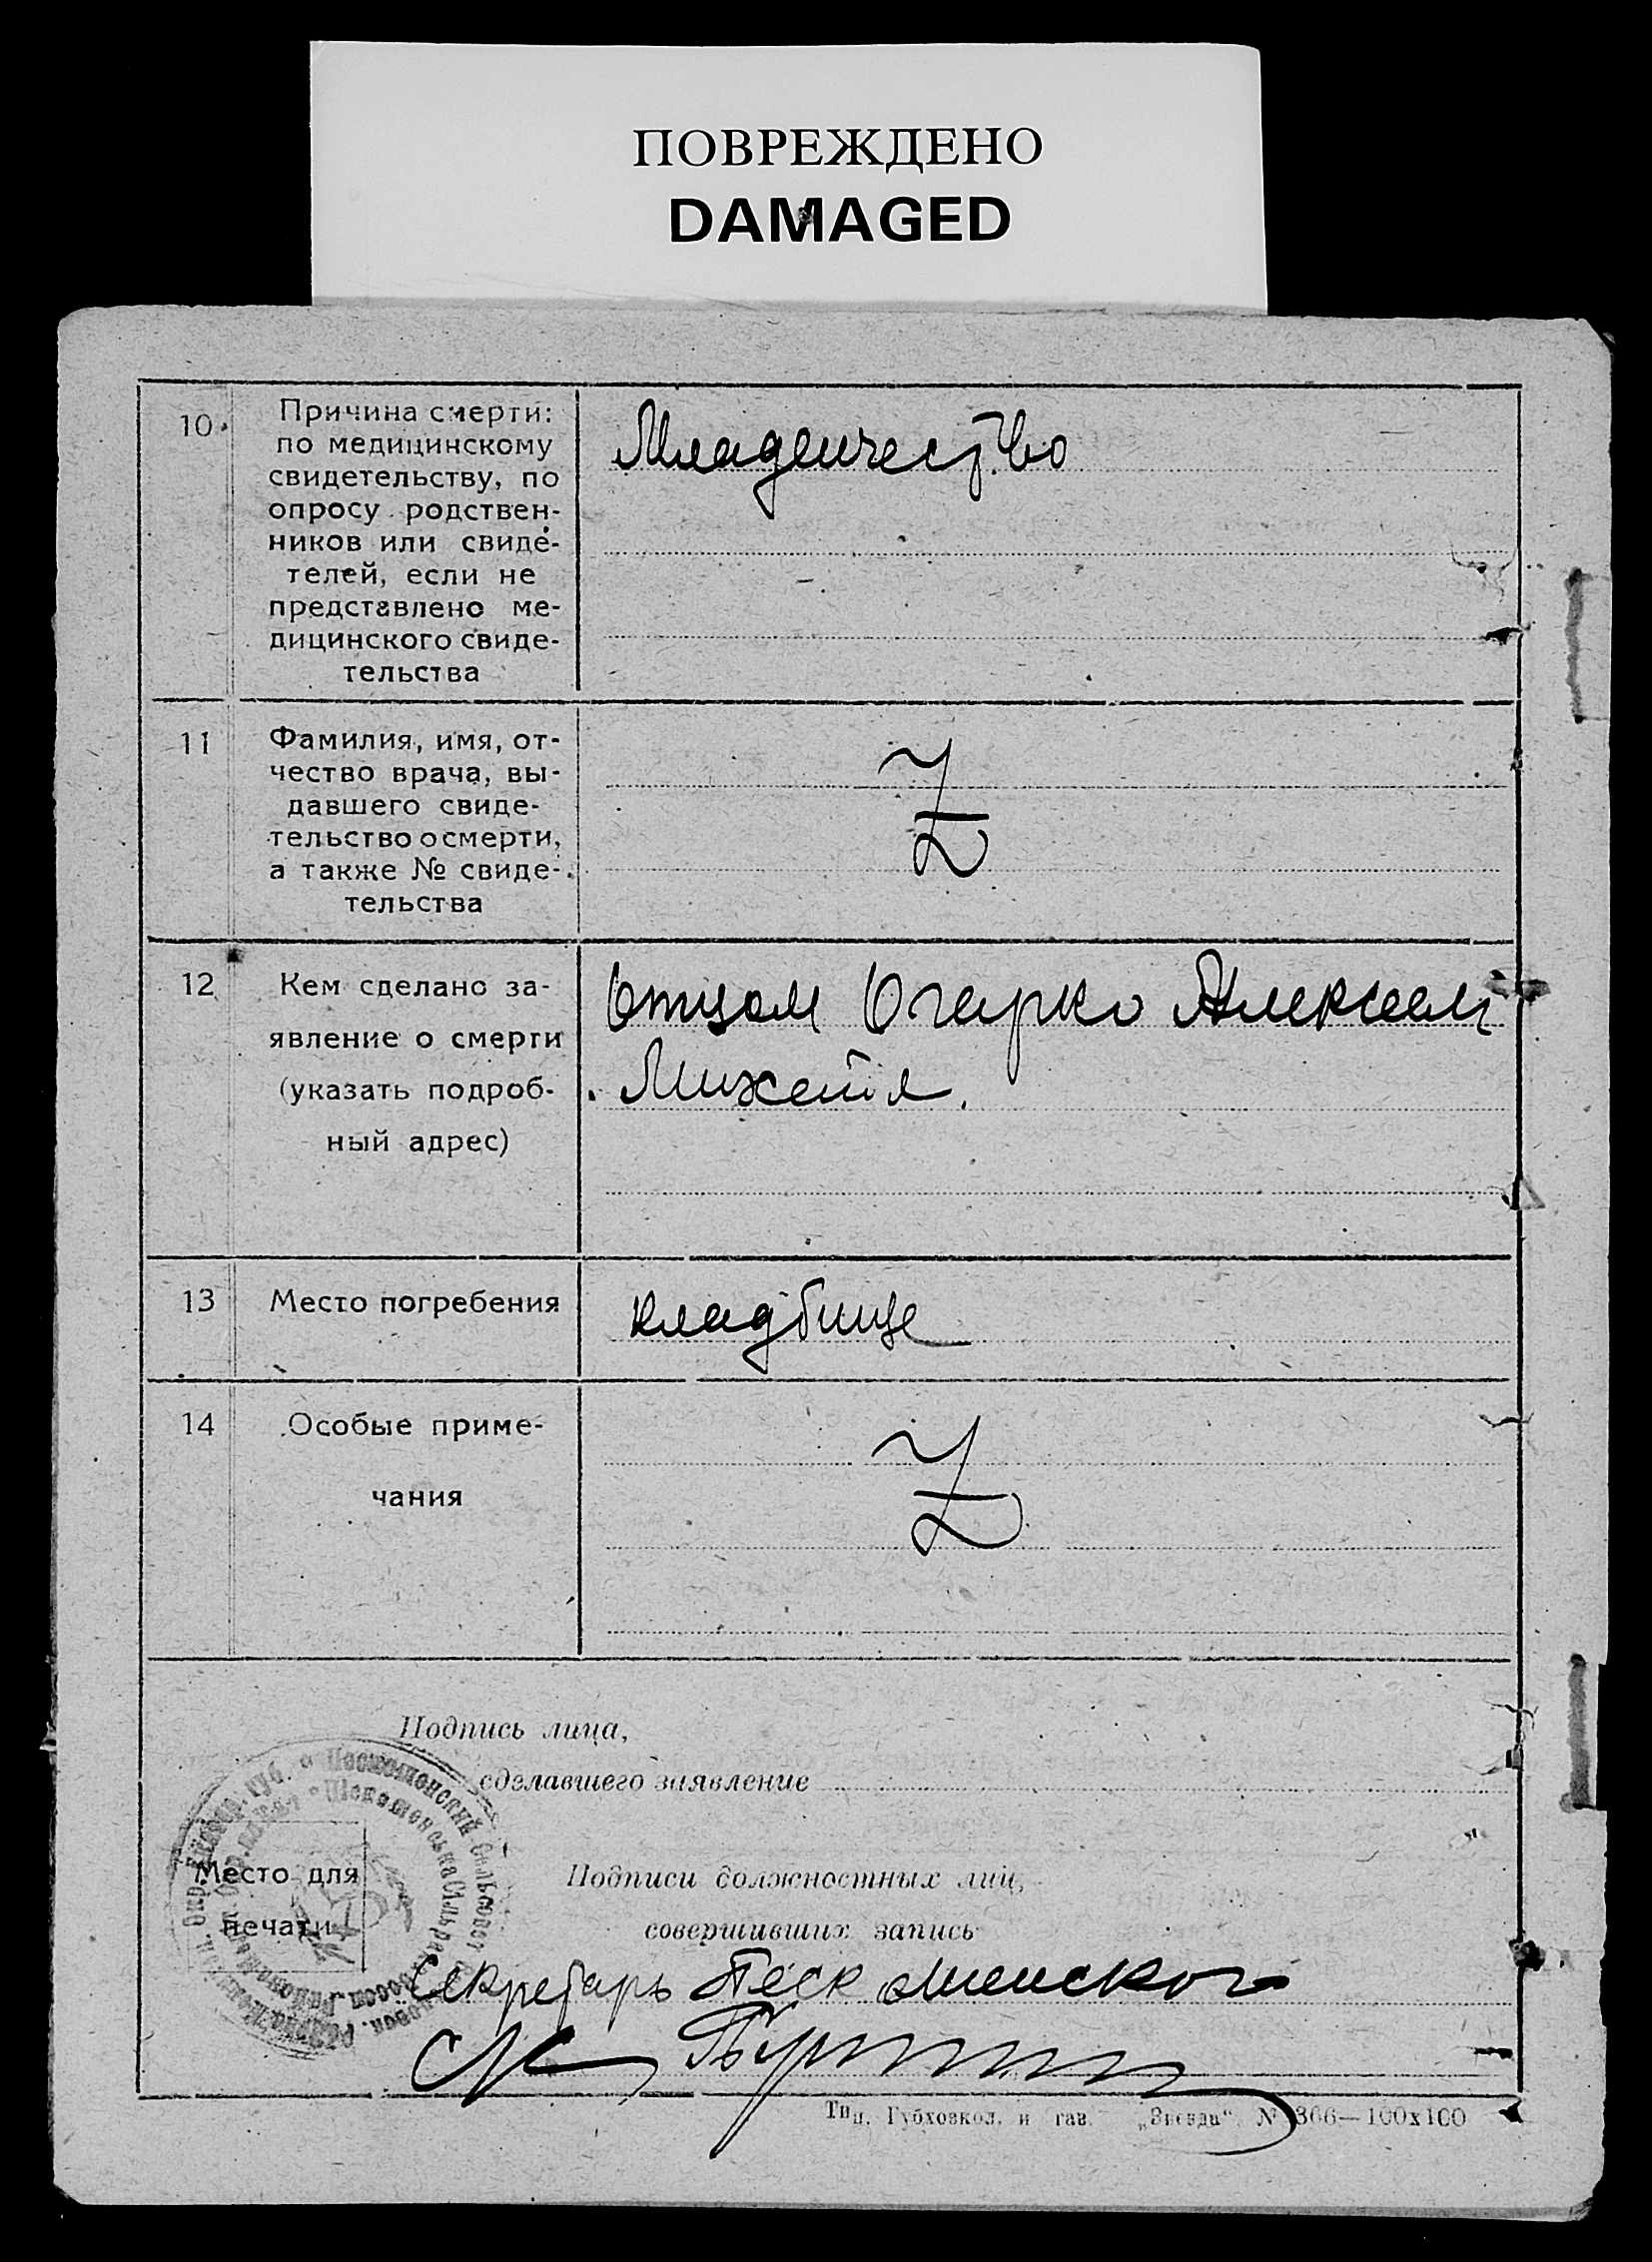 ПОВРЕЖДЕНО
DAMAGED
10. Причина смерти:
по медицинскому
свидетельству, по
опросу родствен-
ников или свиде-
телей, если не
представлено ме-
дицинского свиде-
тельства
Младенчество
11 Фамилия, имя, от-
чество врача, вы-
давшего свиде-
тельство о смерти,
а также № свиде-
тельства
Z
12 Кем сделано за-
явление о смерти
(указать подроб-
ный адрес)
Отцом Огарко Алексеем
13 Место погребения
кладбище
14 Особые приме-
чания
Z
Подпись лица,
сделавшего заявление
Место для
печати
Подписи должностных лиц,
совершивших запись
Секретарь
Тип. Губховкол. и гав. „Звезда“. № 366—100х100